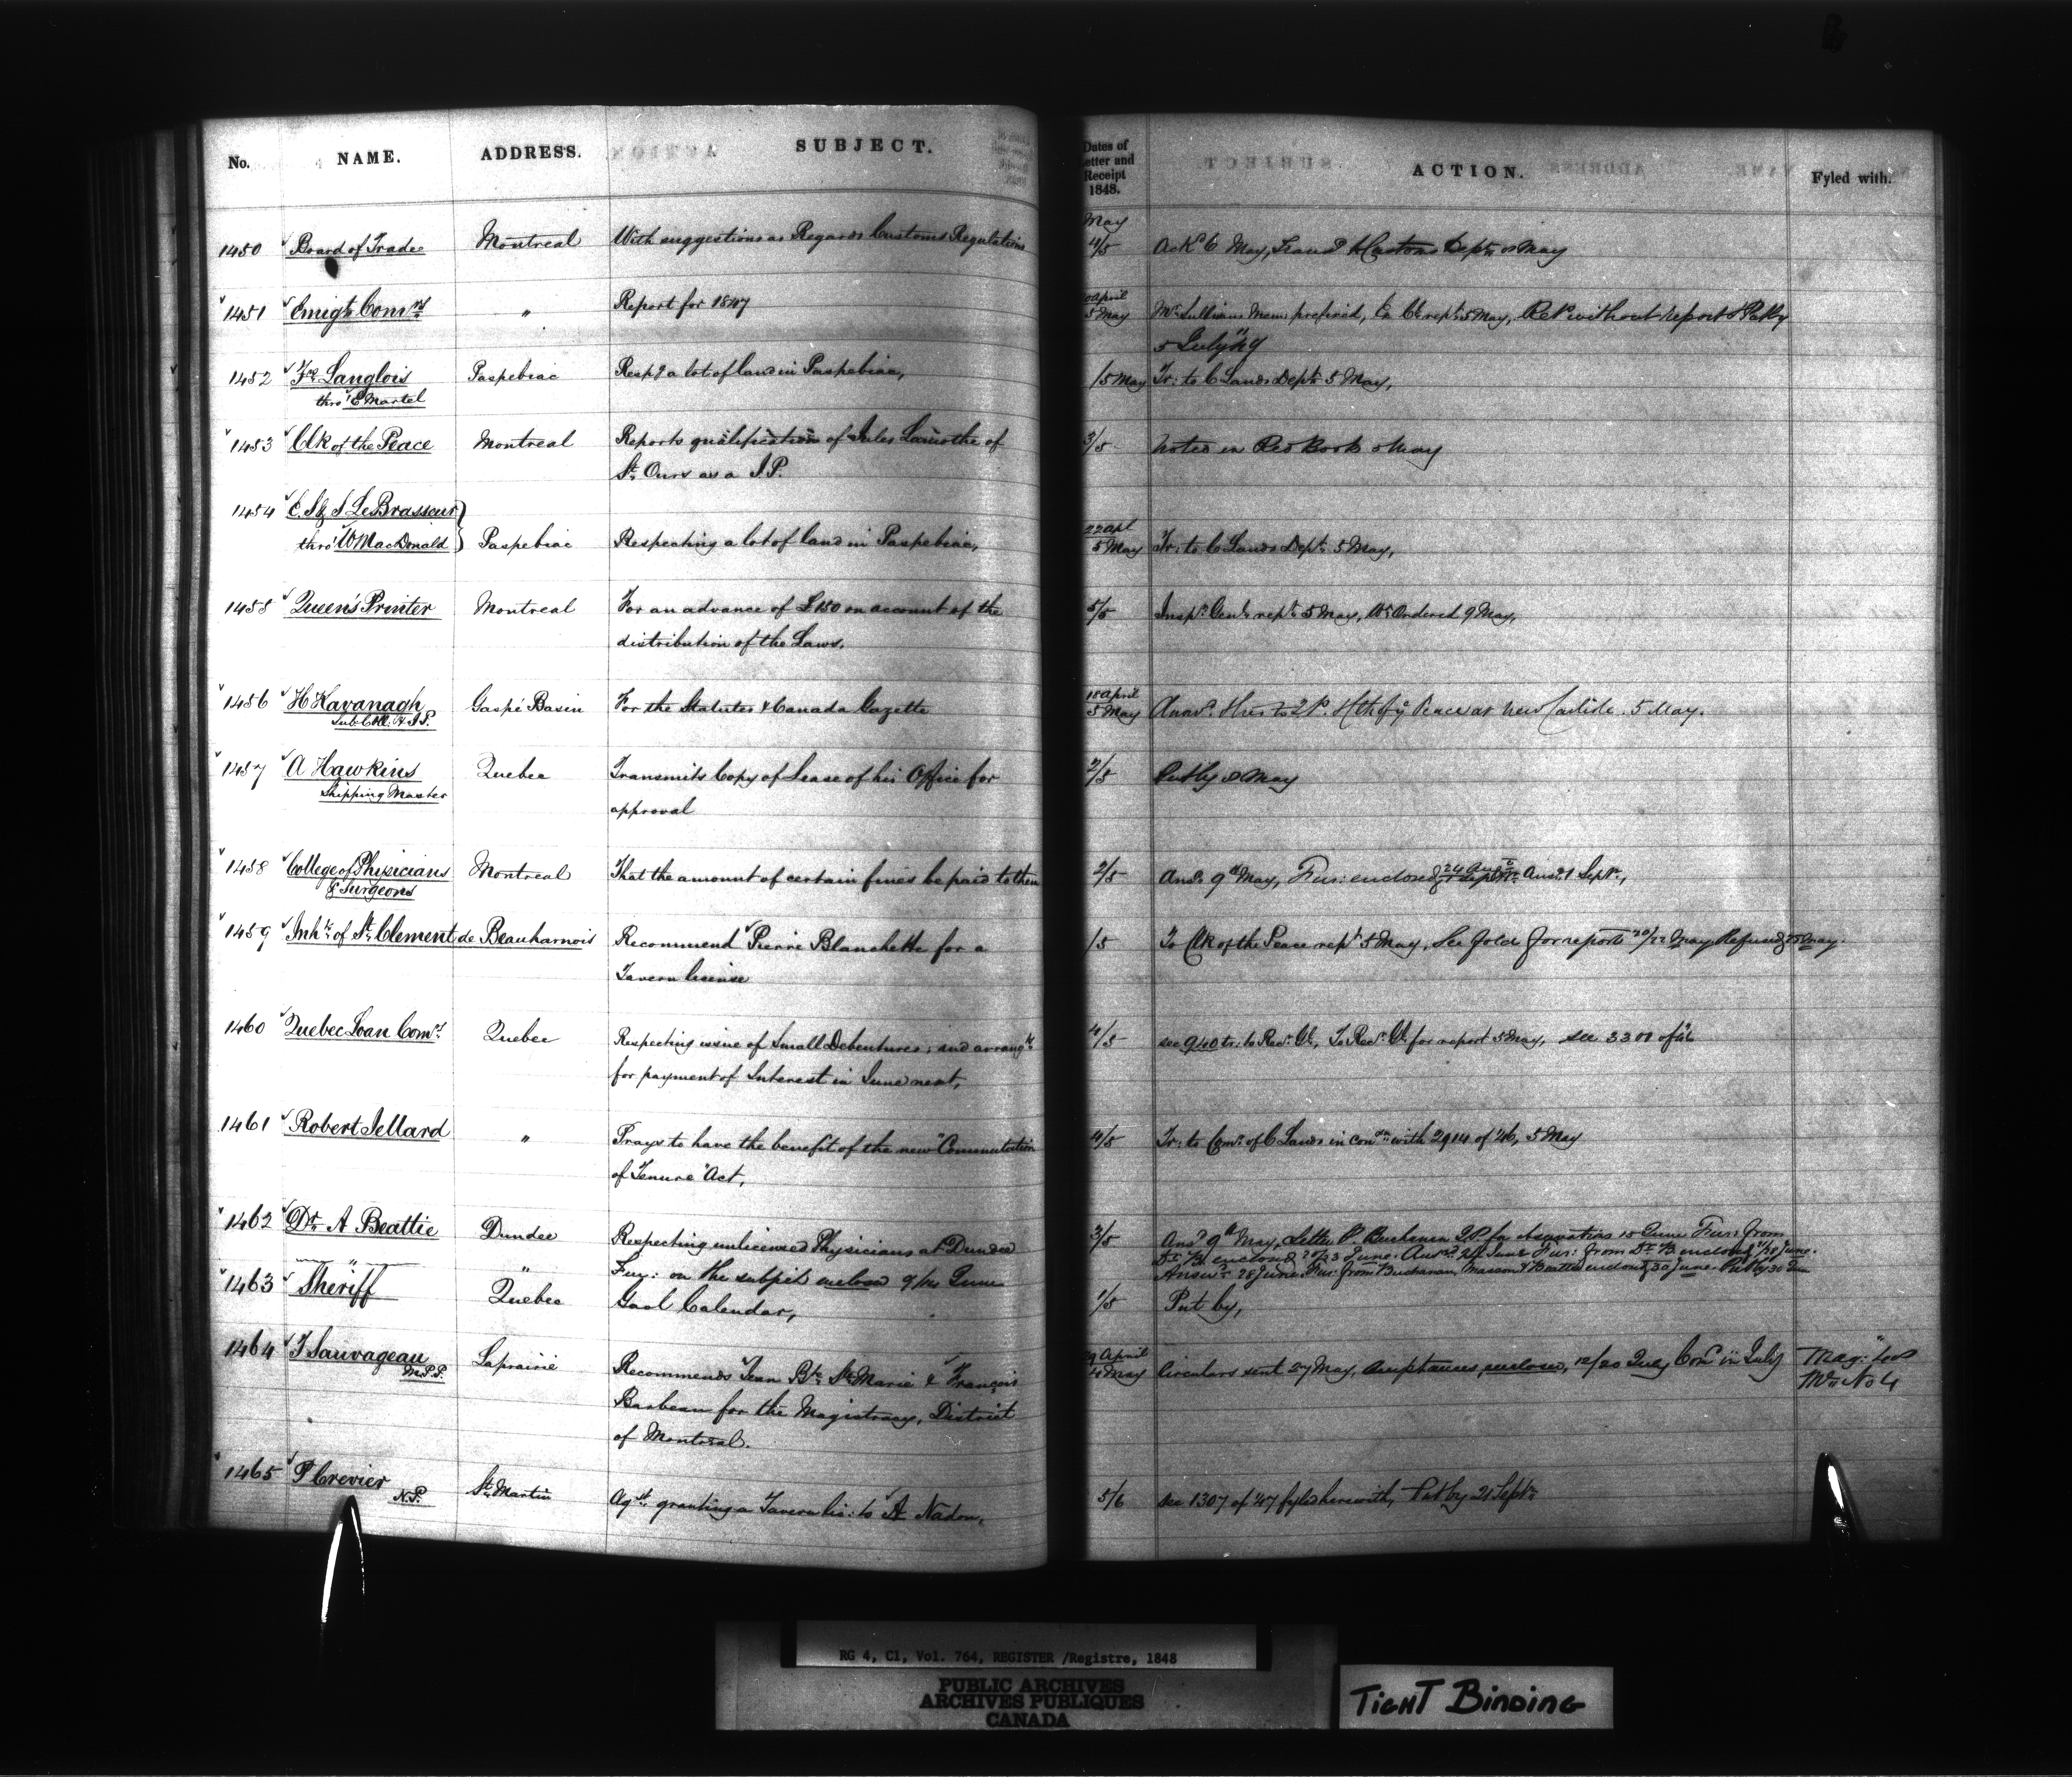 No. NAME. ADDRESS. SUBJECT.
Dates of Letter and Receipt 1848. ACTION. Fyled with.
May
1450 Board of Trade Montreal With suggestions as Regards Customs Regulations 4/5 Ackd 6 May, Customs Dept 8 May
1451 Emigt Comrs " Report for 1847 April 5 May Mr Sullivans Mem prefixed, 5 May, Retd without report & Put by
5 July 49
1452 Langlois Paspebiac Respg a lot of land in Paspebiac, /5 May Tr: to C Lands Dept 5 May,
thro' E Martel
1453 Clk of the Peace Montreal Reports qualification of Jules Lamothe of 3/5 Noted in Red Book 5 May
St Ours as a J.P.
1454 C. J & S LeBrasseur
thro' W MacDonald Paspebiac Respecting a lot of land in Paspebiac, 22 Apl 5 May Tr: to C Lands Dept 5 May,
1455 Queen's Printer Montreal For an advance of £150 on account of the 5/5 Inspr Genl rept 5 May, Wt Ordered 9 May,
distribution of the Laws.
1456 H Kavanagh Gaspé Basin For the Statutes & Canada Gazette 18 April 5 May Peace at New Carlisle. 5 May.
Sub Coll. & J.P.
1457 A Hawkins Quebec Transmits Copy of Lease of his Office for 2/5 Put by 8 May
Shipping Master approval
1458 College of Physicians Montreal That the amount of certain fines be paid to them 2/5 Ansd 9th May, Fur: enclosed Ansd 1 Sept,
& Surgeons
1459 Inhts of St Clement de Beauharnois Recommend Pierre Blanchette for a /5 To Clk of the Peace rept 5 May, See Gold for report 20/22 May Refused 25 May.
Tavern license
1460 Quebec Loan Comrs Quebec Respecting issue of Small Debentures; and arrangts 4/5 see 940 tr: to Recr Gl, To Recr Gl for report 5 May, see 3300 of
for payment of Interest in June next,
1461 Robert Jellard " Prays to have the benefit of the new "Commutation 4/5 Tr: to Comr of C Lands in conon with 2914 of '46, 5 May
of Tenure" Act,
1462 Dr A Beattie Dundee Respecting unlicensed Physicians at Dundee 3/5 Ansd 9th May, Letter P. Buchanan J.P. for observations 15 June Fur: from
" " Fur: on the subject enclosed 9/14 June Dr B. enclosed 20/23 June. Ansd 24 June Fur: from Dr B enclosed 27/28 June.
Answd 28 June Fur: from Buchanan, Masson & Beattie enclosed 30 June. Put by 30 June
1463 Sheriff Quebec Gaol Calendar, 1/5 Put by,
1464 T Sauvageau Laprairie Recommends Jean Bte Ste Marie & François 29 April 4 May Circulars sent 27 May, Acceptances enclosed, 12/20 July Comn in July Mag:
M.P.P. Barbeau for the Magistracy, District No 4
of Montreal.
1465 P Crevier St Martin Agst granting a Tavern lic: to A Nadon, 5/6 see 1307 of '47 fyled herewith, Put by 21 Sept
N.P.
RG 4, C1, Vol. 764, REGISTER /Registre, 1848
PUBLIC ARCHIVES
ARCHIVES PUBLIQUES
CANADA
TIGHT BINDING